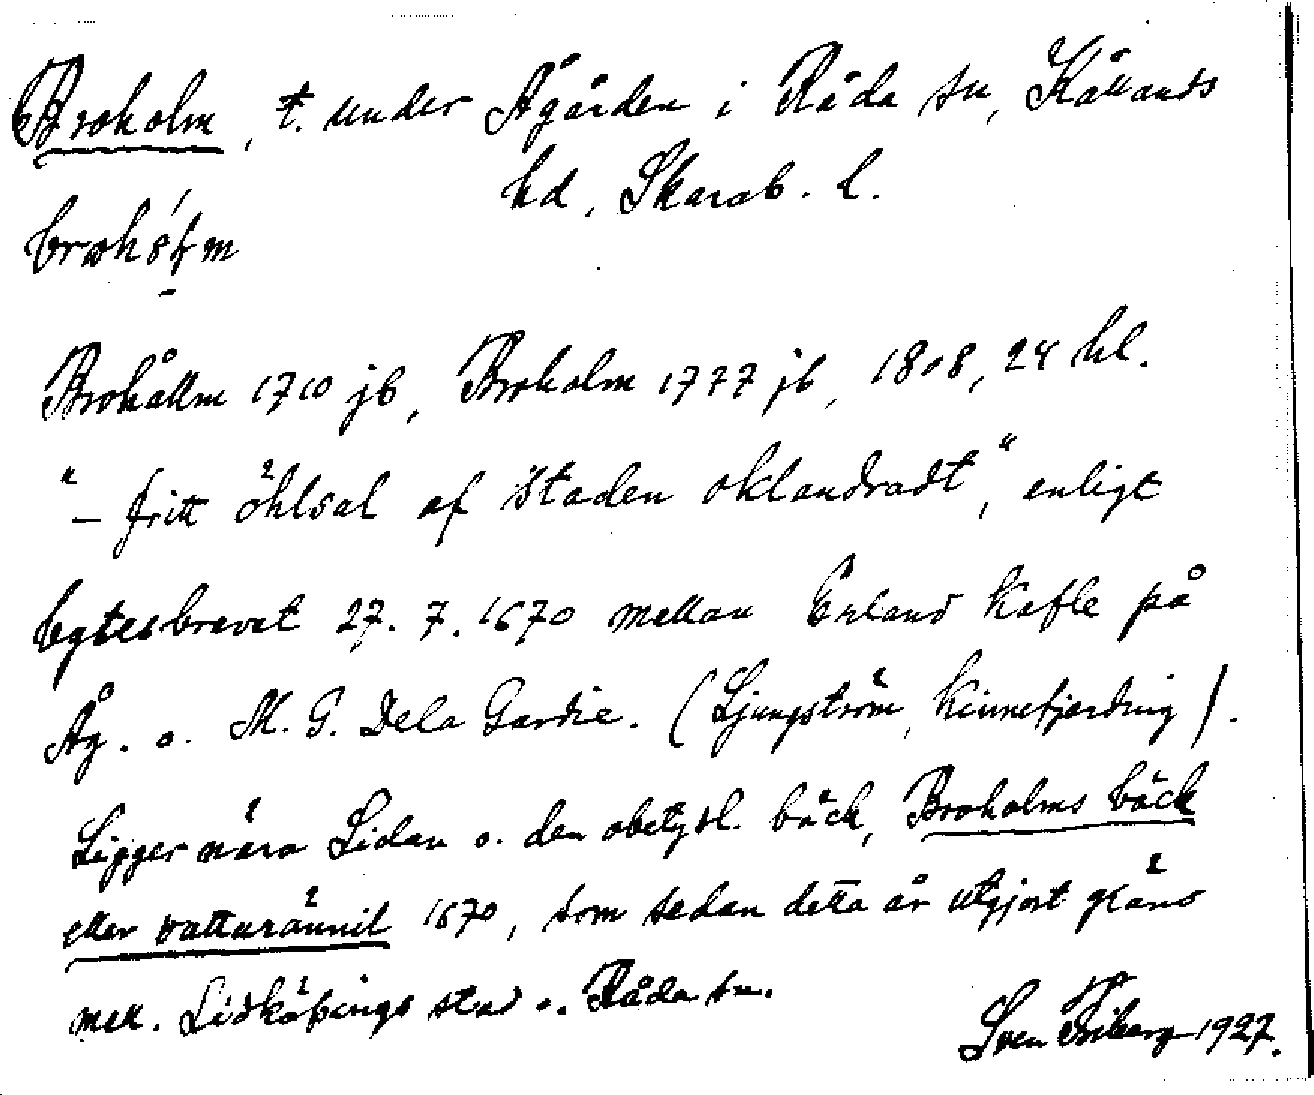 Broholm, t. under Ågården i Råda sn, Kållands
hd, Skarab. l.
Brohållm 1710 jb, Broholm 1777 jb, 1808, 24 hl.
"– fritt öhlsal af Staden oklandradt", enligt
bytesbrevet 27. 7. 1670 mellan Erland Kafle på
Åg. o. M. G. Dela Gardie. (Ljungström, Kinnefjerding).
Ligger nära Lidan o. den obetydl. bäck, Broholms bäck
eller vatturännil 1670, som sedan detta år utgjort gräns
mell. Lidköpings stad o. Råda sn.
Sven Friberg 1927.